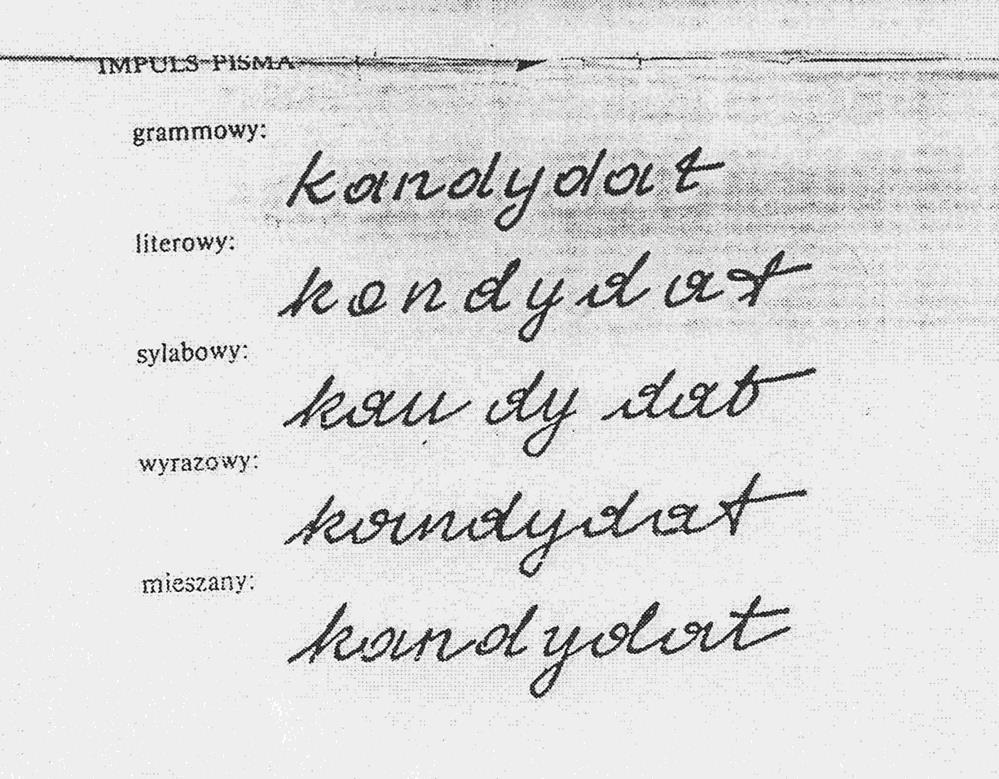 IMPULS PISMA
grammowy:
kandydat
literowy:
kandydat
sylabowy:
kan dy dat
wyrazowy:
kandydat
mieszany:
kandydat